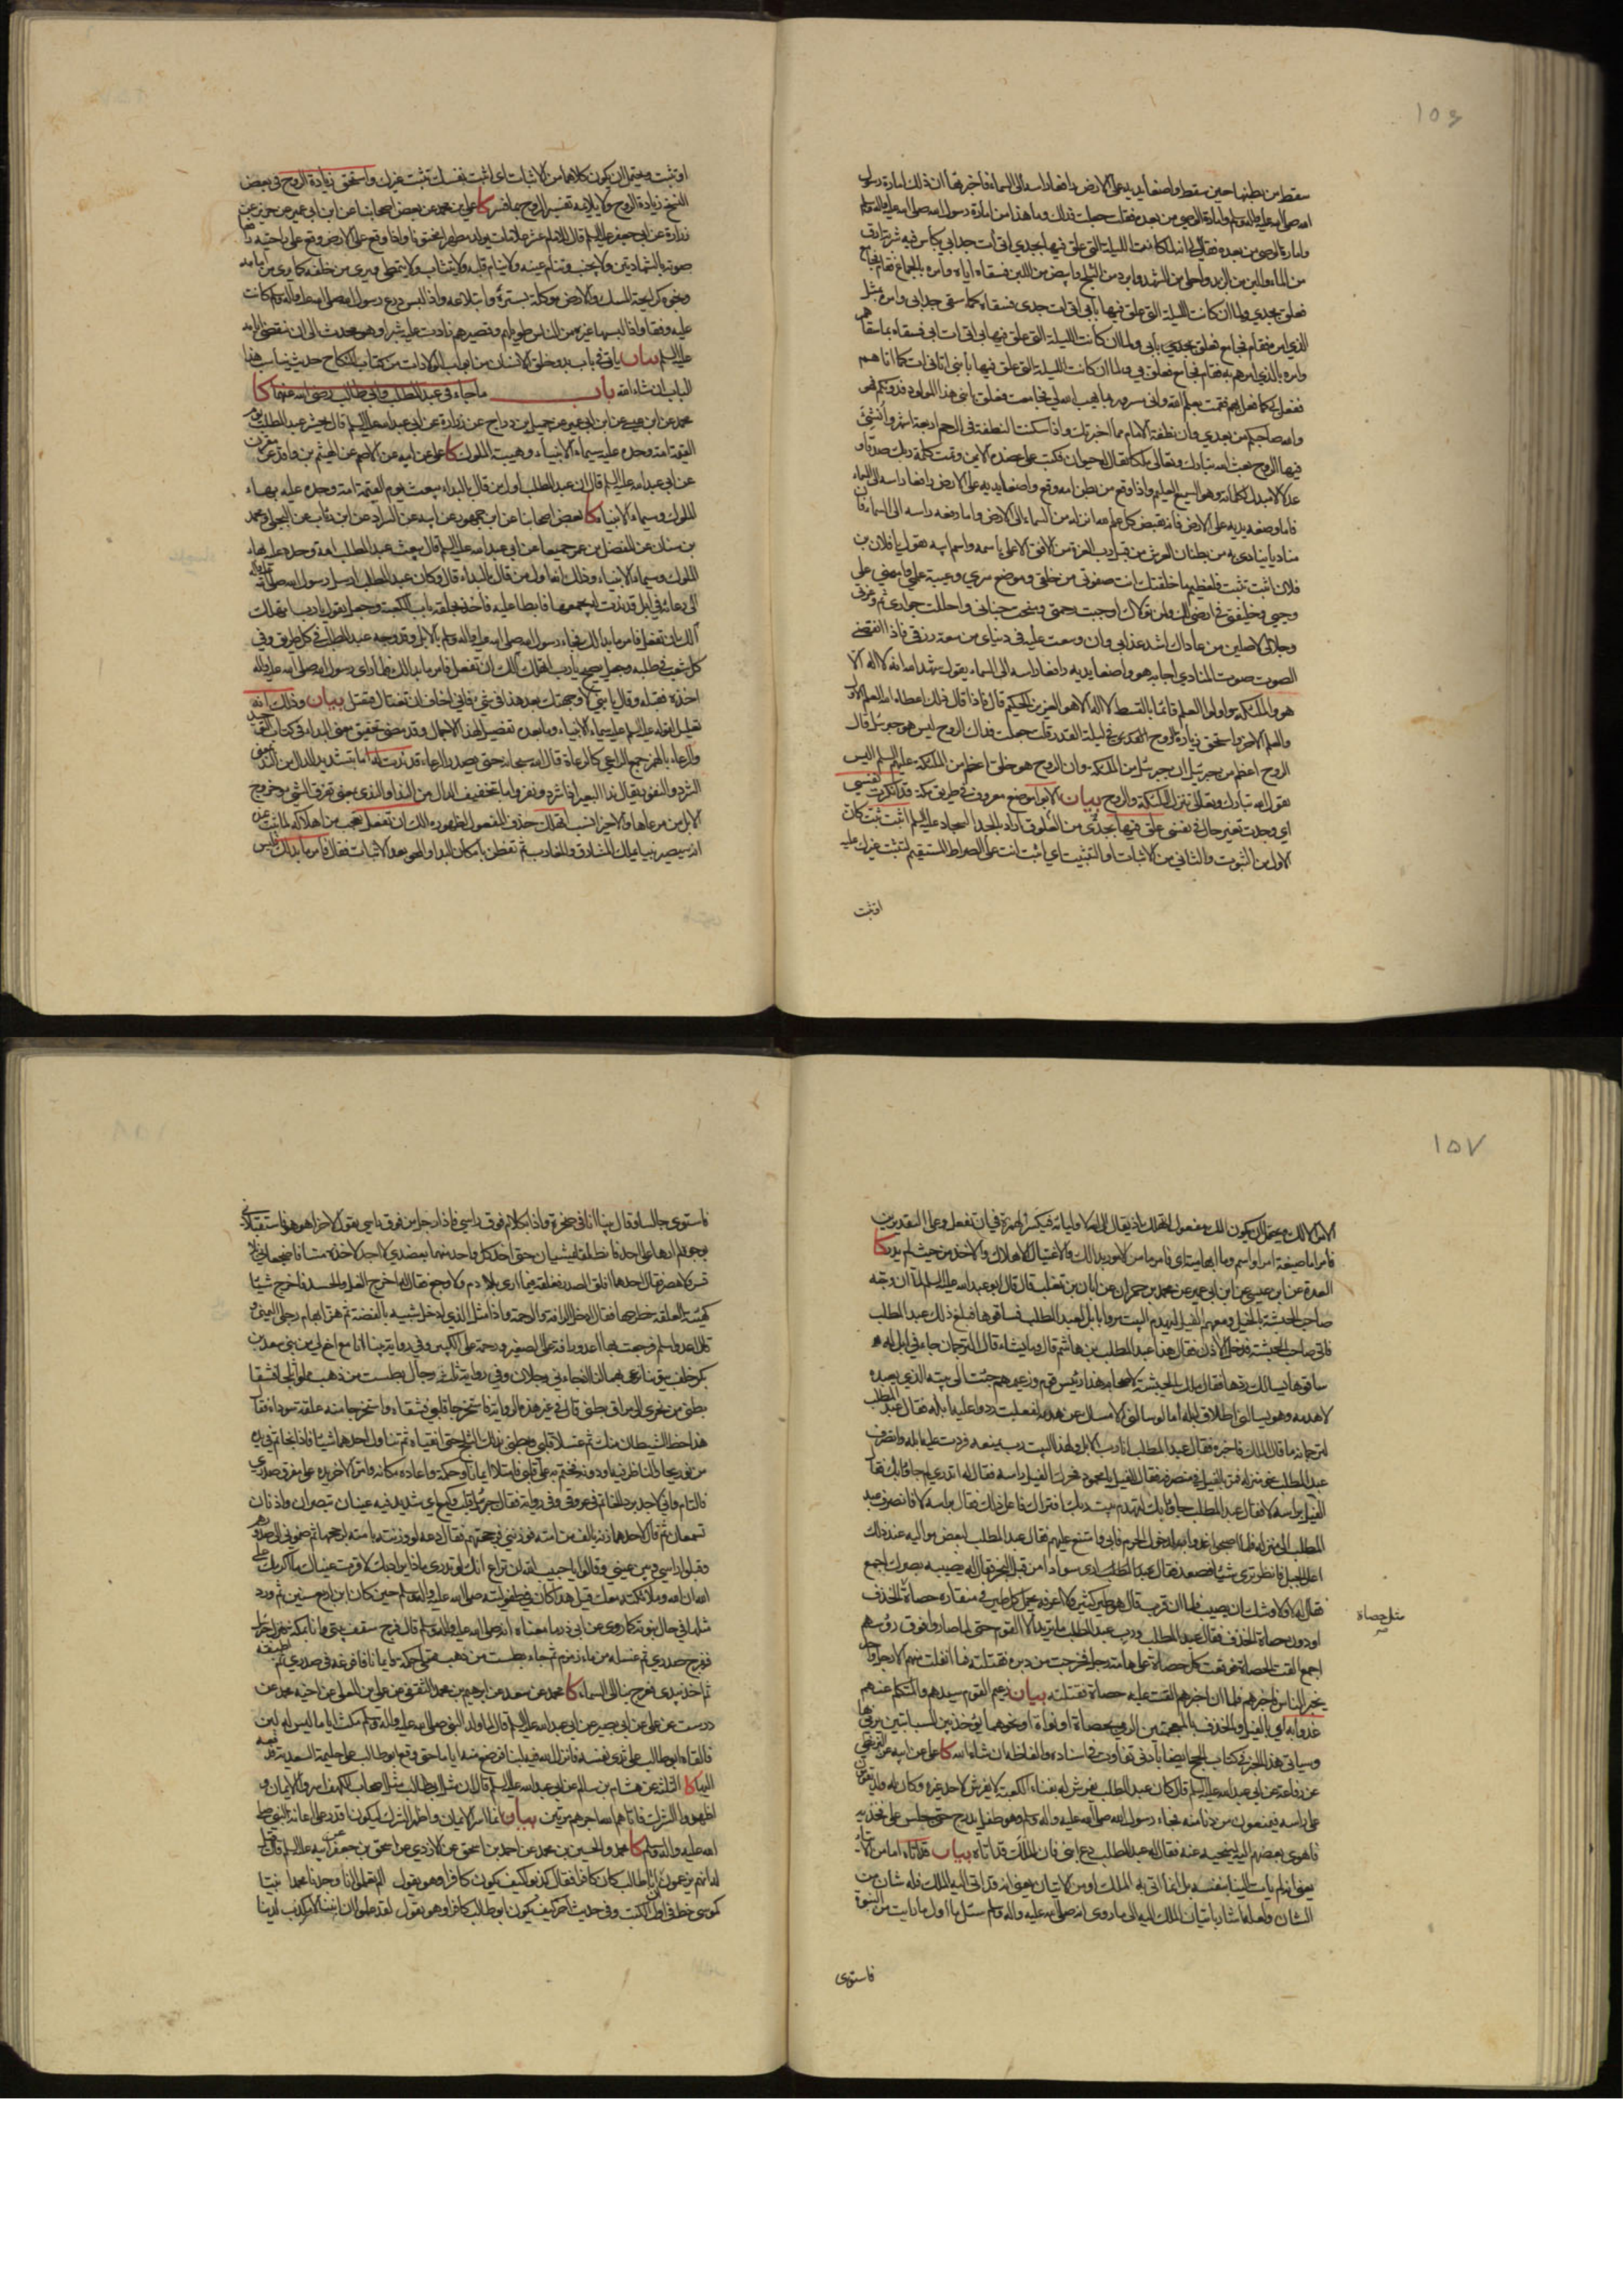 ١٥٦
سقط من بطنها حين سقط واضعا يديه على الارض رافعا راسه الى السماء فاخبرتها ان ذلك امارة رسول
الله صلى الله عليه واله وسلم وامارة الوصي من بعده فقلت جعلت فداك وما هذا من امارة رسول الله صلى الله عليه واله وسلم
وامارة الوصي من بعده فقال لي انه لما كانت الليلة التي علق فيها بجدي اتى آت جد ابي بكاس فيه شربة ارق
من الماء والين من الزبد واحلى من الشهد وابرد من الثلج وابيض من اللبن فسقاه اياه وامره بالجماع فقام فجامع
فعلق بجدي ولما ان كانت الليلة التي علق فيها بابي اتى ات جدي فسقاه كما سقى جد ابي وامره بمثل
الذي امره فقام فجامع فعلق بابي ولما ان كانت الليلة التي علق فيها بي اتى ات ابي فسقاه بما سقاهم
وامره بالذي امرهم به فقام فجامع فعلق بي ولما ان كانت الليلة التي علق فيها بابني اتاني ات كما اتاهم
ففعل بي كما فعل بهم فقمت بعلم الله واني مسرور بما يهب الله لي فجامعت فعلق بابني هذا المولود فدونكم فهو
والله صاحبكم من بعدي وان نطفة الامام مما اخبرتك واذا سكنت النطفة في الرحم اربعة اشهر وانشئ
فيها الروح بعث الله تبارك وتعالى ملكا يقال له حيوان فكتب على عضده الايمن وتمت كلمة ربك صدقا و
عدلا لا مبدل لكلماته وهو السميع العليم واذا وقع من بطن امه وقع واضعا يديه على الارض رافعا راسه الى السماء
فاما وضعه يديه على الارض فانه يقبض كل علم لله انزله من السماء الى الارض واما رفعه راسه الى السماء فان
مناديا ينادي به من بطنان العرش من قبل رب العزة من الافق الاعلى باسمه واسم ابيه يقول يا فلان بن
فلان اثبت تثبت فلعظيم ما خلقتك انت صفوتي من خلقي وموضع سري وعيبة علمي واميني على
وحيي وخليفتي في ارضي لك ولمن تولاك اوجبت رحمتي ومنحت جناني واحللت جواري ثم وعزتي
وجلالي لاصلين من عاداك اشد عذابي وان وسعت عليه في دنياي من سعة رزقي فاذا انقضى
الصوت صوت المنادي اجابه هو واضعا يديه رافعا راسه الى السماء يقول شهد الله انه لا اله الا
هو والملئكة واولوا العلم قائما بالقسط لا اله الا هو العزيز الحكيم قال فاذا قال ذلك اعطاه الله العلم الاول
والعلم الاخر واستحق زيارة الروح في ليلة القدر قلت جعلت فداك الروح ليس هو جبرئيل قال
الروح اعظم من جبرئيل ان جبرئيل من الملئكة وان الروح هو خلق اعظم من الملئكة عليهم السلم اليس
يقول الله تبارك وتعالى تنزل الملئكة والروح بيان الابواء موضع معروف في طريق مكة قد انكرت نفسي
اي وجدت تغير حال في نفسي علق فيها بجدي من العلوق اراد بالجد السجاد عليه السلم اثبت تثبت كان
الاول من الثبوت والثاني من الاثبات او التثبيت اي اثبت انت على الصراط المستقيم لتثبت غيرك عليه
اوتثبت
اوتثبت ويحتمل ان يكون كلاهما من الاثبات اي اثبت نفسك تثبت غيرك واستحق زيادة الروح في بعض
النسخ زيادة الروح ولا يلائمه تفسير الروح بما فسر كا علي بن محمد عن بعض اصحابنا عن ابن ابي عمير عن حريز عن
زرارة عن ابي جعفر عليه السلم قال للامام عشر علامات يولد مطهرا مختونا واذا وقع على الارض وقع على راحتيه رافعا
صوته بالشهادتين ولا يجنب وتنام عينه ولا ينام قلبه ولا يتثاب ولا يتمطى ويرى من خلفه كما يرى من امامه
ونجوه كرائحة المسك والارض موكلة بستره وابتلاعه واذا لبس درع رسول الله صلى الله عليه واله وسلم كانت
عليه وفقا واذا لبسها غيره من الناس طويلهم وقصيرهم زادت عليه شبرا وهو محدث الى ان تنقضي ايامه
عليه السلم بيان ياتي في باب بدو خلق الانسان من ابواب الولادات من كتاب النكاح حديث يناسب هذا
الباب ان شاء الله باب ما جاء في عبد المطلب وابي طالب رضي الله عنهما كا
محمد عن ابن عيسى عن ابن ابي عمير عن جميل بن دراج عن زرارة عن ابي عبد الله عليه السلم قال يحشر عبد المطلب يوم
القيمة امة وحده عليه سيماء الانبياء وهيبة الملوك كا علي عن ابيه عن الاصم عن الهيثم بن واقد عن مقرن
عن ابي عبد الله عليه السلم قال ان عبد المطلب اول من قال بالبداء يبعث يوم القيمة امة وحده عليه بهاء
الملوك وسيماء الانبياء كا بعض اصحابنا عن ابن جمهور عن ابيه عن السراد عن ابن رئاب عن البجلي ومحمد
بن سنان عن المفضل بن عمر جميعا عن ابي عبد الله عليه السلم قال يبعث عبد المطلب امة وحده عليه بهاء
الملوك وسيماء الانبياء وذلك انه اول من قال بالبداء قال وكان عبد المطلب ارسل رسول الله صلى الله عليه واله
الى رعائه في ابل قد ندت له يجمعها فابطا عليه فاخذ بحلقة باب الكعبة وجعل يقول يا رب اتهلك
آلك ان تفعل فامر ما بدا لك فجاء رسول الله صلى الله عليه واله وسلم بالابل وقد وجه عبد المطلب في كل طريق وفي
كل شعب في طلبه وجعل يصيح يا رب اتهلك آلك ان تفعل فامر ما بدا لك فلما رأى رسول الله صلى الله عليه واله
اخذه فقبله وقال يا بني لا وجهتك بعد هذا في شئ فاني اخاف ان تغتال فتقتل بيان وذلك انه
تعليل لقوله عليه السلم عليه سيماء الانبياء وما بعده تفضيل لهذا الاجمال وقد مضى تحقيق معنى البداء في كتاب العقل
والرعاء بالهمز جمع الراعي كالرعاة قال الله سبحانه حتى يصدر الرعاء قد ندت له اما بتشديد الدال من الند بمعنى
الشرد والنفور يقال ند البعير اذا شرد ونفر واما بتخفيف الدال من الندو الذي بمعنى تفرق الشئ وخروج
الابل من مرعاها والاخير انسب اتهلك حذف المفعول لظهوره آلك ان تفعل تعجب من اهلاكه لما ثبت عنده
انه سيصير نبيا يملك المشارق والمغارب ثم تفطن بامكان البداء والمحو بعد الاثبات فقال فامر ما بدا لك فليس
١٥٧
الامر الا لك ويحتمل ان يكون آلك مفعول اتهلك
فامر اما صيغة امر او اسم وما ابهامية اي فامر ما من الامور بدا لك والاغتيال الاهلاك والاخذ من حيث لم يدر كا
العدة عن ابن عيسى عن ابن ابي عمير عن محمد بن حمران عن ابان بن تغلب قال قال ابو عبد الله عليه السلم لما ان وجه
صاحب الحبشة بالخيل ومعهم الفيل ليهدم البيت مروا بابل لعبد المطلب فساقوها فبلغ ذلك عبد المطلب
فاتى صاحب الحبشة فدخل الاذن فقال هذا عبد المطلب بن هاشم قال وما يشاء قال الترجمان جاء في ابل له
ساقوها يسالك ردها فقال ملك الحبشة لاصحابه هذا رئيس قوم وزعيمهم جئت الى بيته الذي يعبده
لاهدمه وهو يسالني اطلاق ابله اما لو سالني الامساك عن هدمه لفعلت ردوا عليه ابله فقال عبد المطلب
لترجمانه ما قال الملك فاخبره فقال عبد المطلب انا رب الابل ولهذا البيت رب يمنعه فردت عليه ابله وانصرف
عبد المطلب نحو منزله فمر بالفيل في منصرفه فقال للفيل يا محمود فحرك الفيل راسه فقال له اتدري لم جاؤا بك فقال
الفيل براسه لا فقال عبد المطلب جاؤا بك لتهدم بيت ربك افتراك فاعل ذلك فقال براسه لا فانصرف عبد
المطلب الى منزله فلما اصبحوا غدوا به لدخول الحرم فابى وامتنع عليهم فقال عبد المطلب لبعض مواليه عند ذلك
اعل الجبل فانظر ترى شيئا فصعد فقال عبد المطلب ارى سوادا من قبل البحر فقال له يصيبه بصرك اجمع
فقال له لا ولاوشك ان يصيب فلما ان قرب قال هو طير كثير ولا اعرفه يحمل كل طير في منقاره حصاة الخذف
او دون حصاة الخذف فقال عبد المطلب ورب عبد المطلب ما تريد الا القوم حتى لما صاروا فوق رؤسهم
اجمع القت الحصاة فوقعت كل حصاة على هامة رجل فخرجت من دبره فقتلته فما انفلت منهم الا رجل واحد
يخبر الناس فلما ان اخبرهم القت عليه حصاة فقتلته بيان زعيم القوم سيدهم والمتكلم عنهم
غدوا به اي بالفيل والخذف بالمعجمتين الرمي بحصاة او نواة او نحوهما يؤخذ بين السبابتين يرمى بها
وسياتي هذا الخبر في كتاب الحج ايضا بادنى تفاوت في اسناده والفاظه ان شاء الله كا علي عن ابيه عن البزنطي
عن رفاعة عن ابي عبد الله عليه السلم قال كان عبد المطلب يفرش له بفناء الكعبة لا يفرش لاحد غيره وكان له ولد يقومون
على راسه فيمنعون من دنا منه فجاء رسول الله صلى الله عليه واله وسلم وهو طفل يدرج حتى جلس على فخذيه
فاهوى بعضهم اليه لينحيه عنه فقال له عبد المطلب دع ابني فان الملك قد اتاه بيان قد اتاه اما من
الشان ولعله اشار باتيان الملك اليه الى ما روى انه صلى الله عليه واله وسلم سئل ما اول ما رايت من النبوة
مثل حصاة
فاستوى
فاستوى جالسا وقال بينا انا في صخرة واذا بكلام فوق راسي فاذا رجل من فوق راسي يقول لاخر اهو هو فاستقبلاني
بوجوه لم ارها على احد فانطلقا يمشيان حتى اخذ كل واحد منهما بعضدي لا اجد لاخذه مسا فاضجعاني بلا
قسر ولا هصر فقال احدهما افلق الصدر ففلقه فيما ارى بلا دم ولا وجع فقال له اخرج الغل والحسد فاخرج شيئا
كهيئة العلقة فطرحها فقال ادخل الرافة والرحمة واذا مثل الذي ادخل شبيه بالفضة ثم هز ابهام رجلي اليمنى و
قال اغد واسلم فرجعت بها اغدو رافة على الصغير ورحمة على الكبير وفي رواية بينا انا مع اخ لي من بني سعد بن
بكر خلف بيوتنا نرعى بهما لنا فجاءني رجلان وفي رواية ثلثة رجال بطست من ذهب مملوة ثلجا فشقا
بطني من نحري الى مراق بطني قال في غير هذه الرواية فاستخرجا قلبي فشقاه واستخرجا منه علقة سوداء فقال
هذا حظ الشيطان منك ثم غسلا قلبي وبطني بذلك الثلج حتى انقياه ثم تناول احدهما شيئا فاذا بخاتم في يده
من نور يحار الناظر فيه او دونه فختم به على قلبي فامتلا ايمانا وحكمة واعاده مكانه وامر الاخر يده على مفرق صدري
فالتام واني لاجد برد الخاتم في عروقي وفي رواية فقال جبرئيل قلب وكيع اي شديد فيه عينان تبصران واذنان
تسمعان ثم قال احدهما زنه بالف من امته فوزنني فرجحتهم فقال دعه لو وزنته بامته لرجحها ثم ضموني الى صدورهم
وقبلوا راسي وبين عيني وقالوا يا حبيب لم ترع انك لو تدري ما يراد بك لقرت عيناك ما اكرمك على
الله ان الله وملائكته معك قيل هذا كان في طفوليته صلى الله عليه واله وسلم حين كان ابن اربع سنين ثم ورد
مثلها في حال نبوته كما روى عن ابي ذر ما معناه انه صلى الله عليه واله وسلم قال فرج سقف بيتي وانا بمكة فنزل جبرئيل
ففرج صدري ثم غسله من ماء زمزم ثم جاء بطست من ذهب ممتلئ حكمة وايمانا فافرغه في صدري ثم اطبقه
ثم اخذ بيدي فعرج بنا الى السماء كا محمد عن سعد عن ابراهيم بن محمد الثقفي عن علي بن المعلى عن اخيه محمد عن
درست عن علي عن ابي بصير عن ابي عبد الله عليه السلم قال لما ولد النبي صلى الله عليه واله وسلم مكث اياما ليس له لبن
فالقاه ابو طالب على ثدي نفسه فانزل الله فيه لبنا فرضع منه اياما حتى وقع ابو طالب على حليمة السعدية فدفعه
اليها كا الثلثة عن هشام بن سالم عن ابي عبد الله عليه السلم قال ان مثل ابي طالب مثل اصحاب الكهف اسروا الايمان و
اظهروا الشرك فاتاهم الله اجرهم مرتين بيان انما اسر الايمان واظهر الشرك ليكون اقدر على اعانة النبي صلى
الله عليه واله وسلم كا محمد والحسين بن محمد عن احمد بن اسحق عن الازدي عن اسحق بن جعفر عن ابيه عليه السلم قال قيل
له انهم يزعمون ان ابا طالب كان كافرا فقال كذبوا كيف يكون كافرا وهو يقول الم تعلموا انا وجدنا محمدا نبيا
كموسى خط في اول الكتب وفي حديث آخر كيف يكون ابو طالب كافرا وهو يقول لقد علموا ان ابننا لا مكذب لدينا